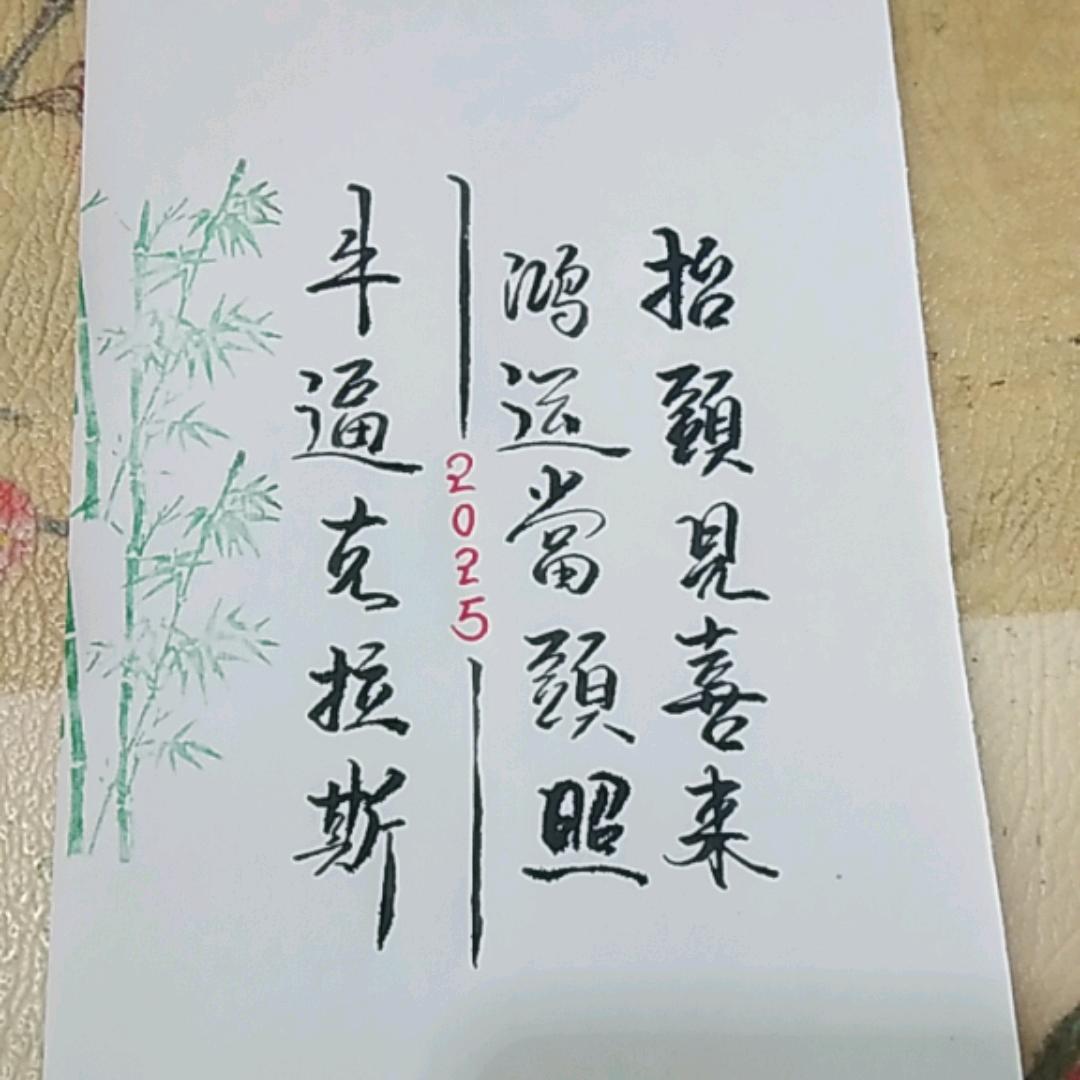 抬頭見喜来
鴻运當頭照
2025
斗逼克拉斯